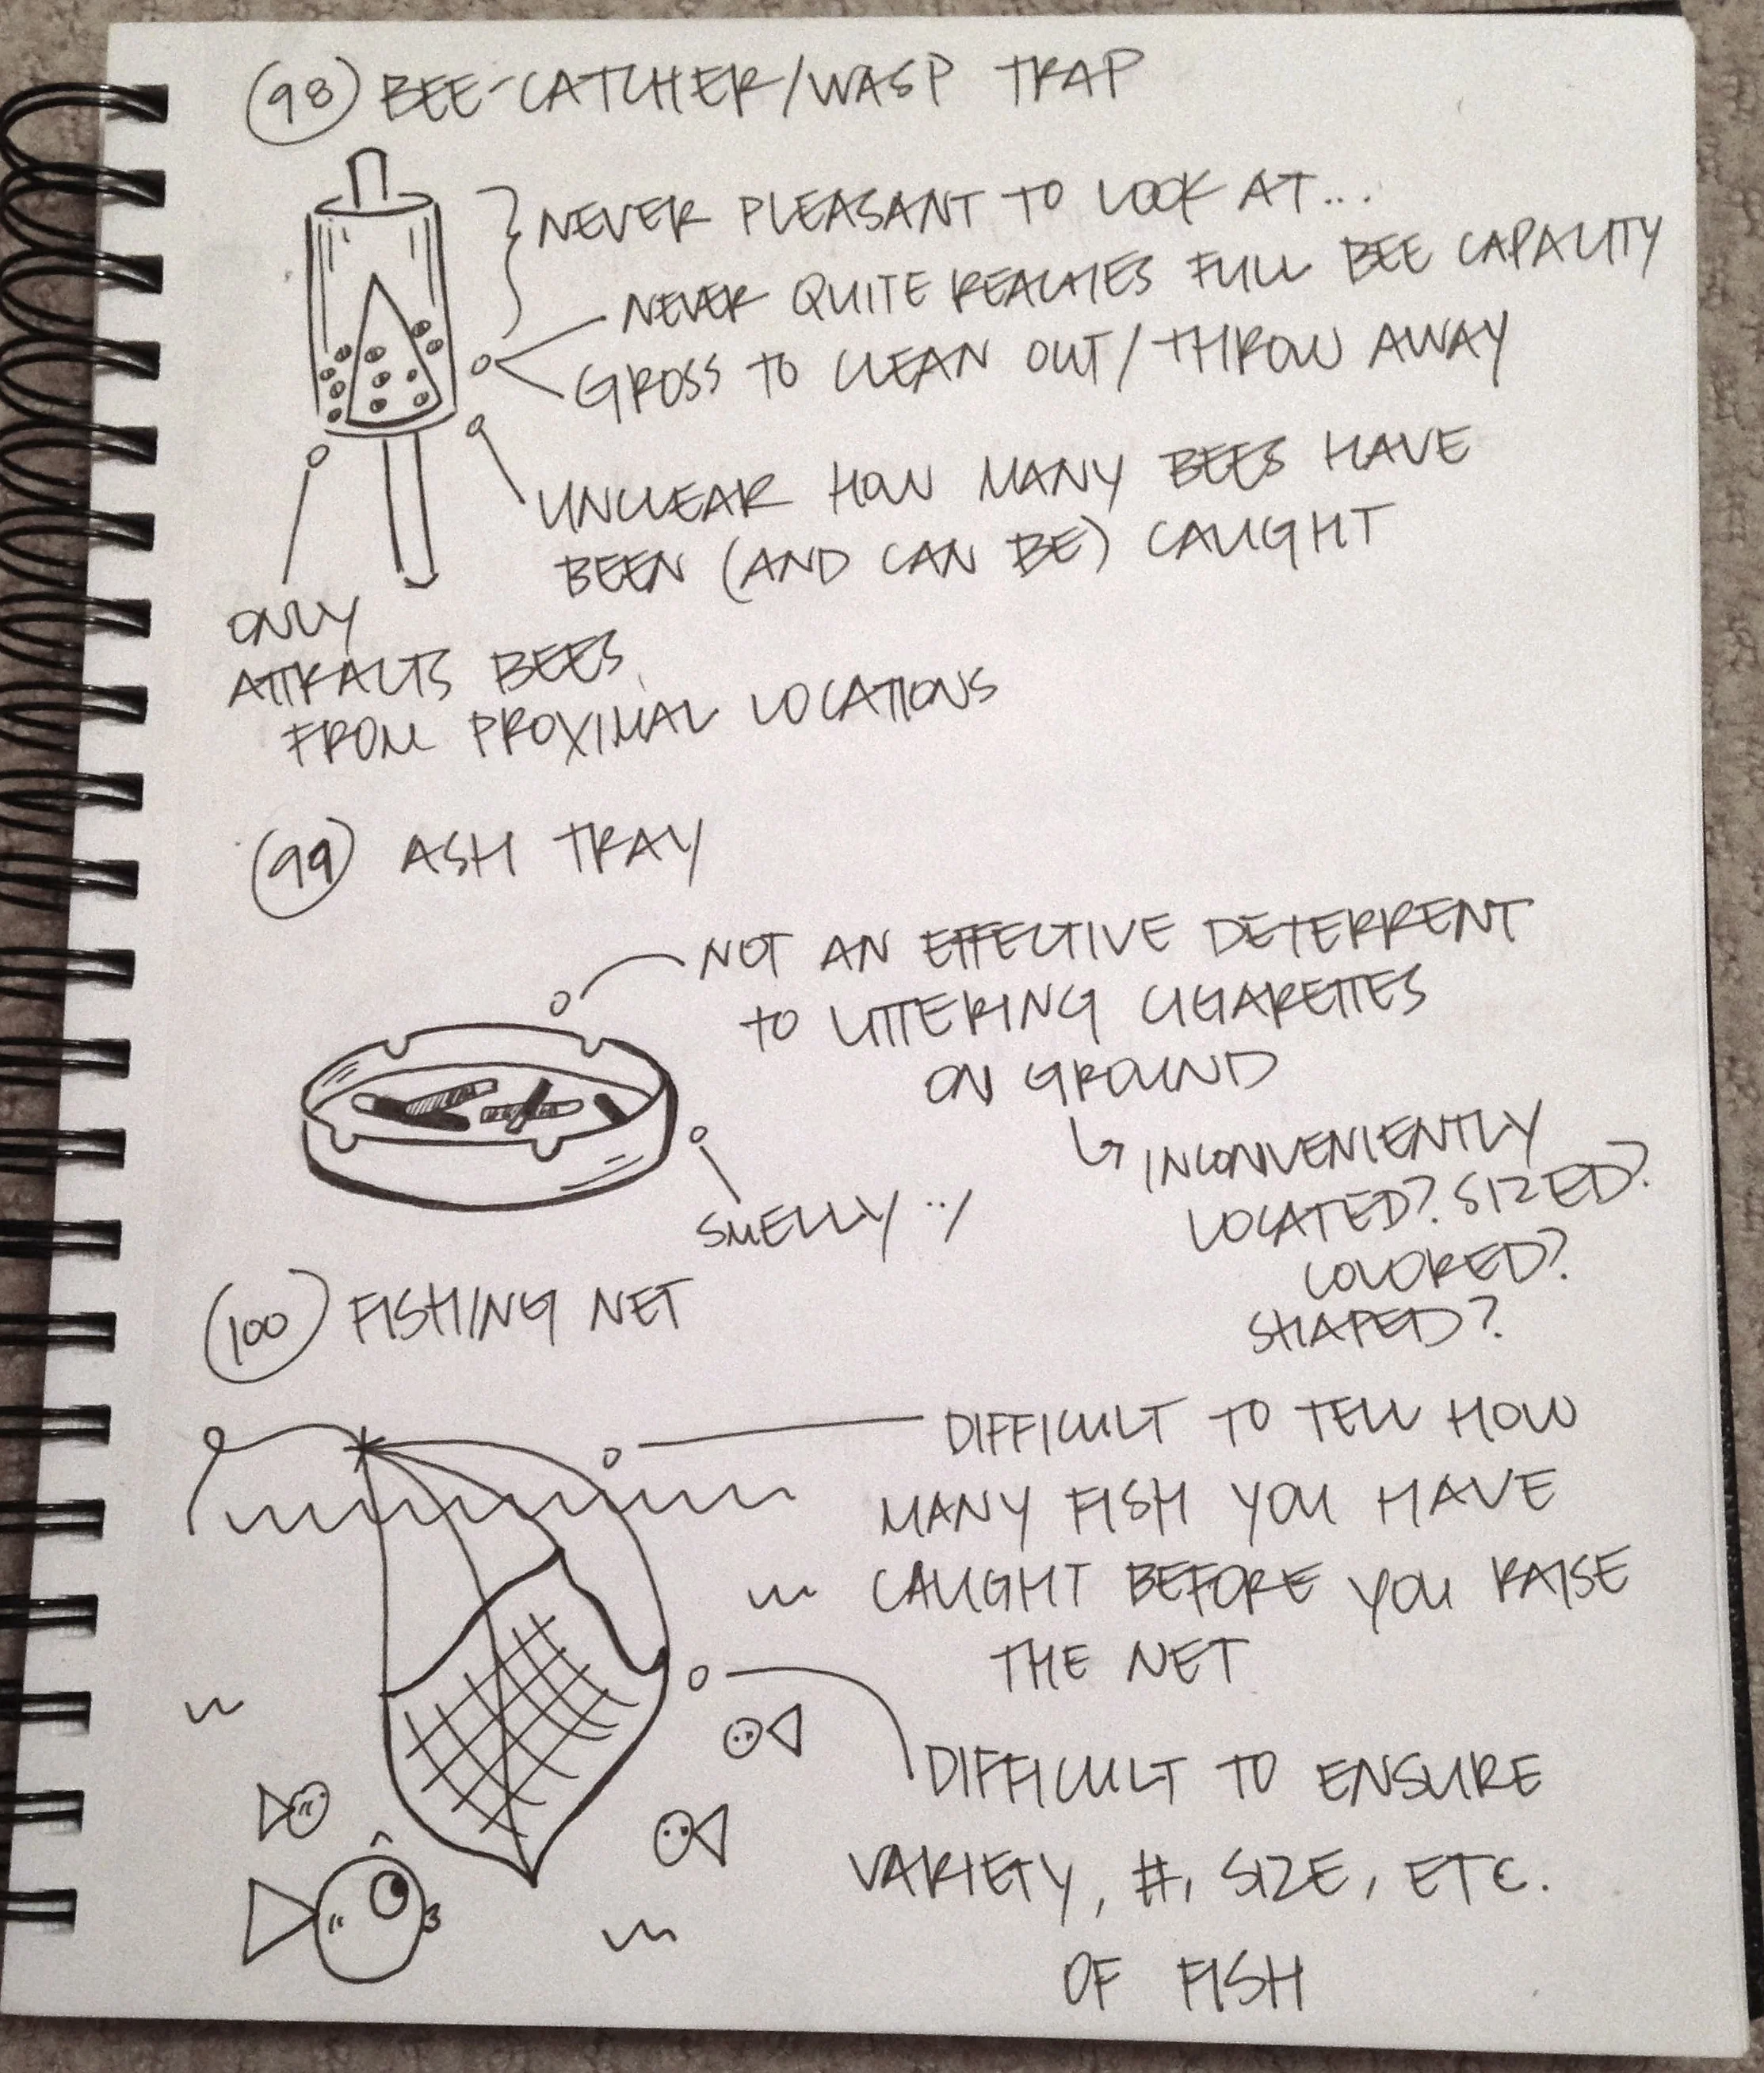 98 BEE-CATCHER/WASP TRAP
NEVER PLEASANT TO LOOK AT...
NEVER QUITE REACHES FULL BEE CAPACITY
GROSS TO CLEAN OUT/THROW AWAY
UNCLEAR HOW MANY BEES HAVE
BEEN (AND CAN BE) CAUGHT
ONLY
ATTRACTS BEES
FROM PROXIMAL LOCATIONS
99 ASH TRAY
NOT AN EFFECTIVE DETERRENT
TO LITTERING CIGARETTES
ON GROUND
↳ INCONVENIENTLY
LOCATED? SIZED?
COLORED?
SHAPED?
SMELLY :/
100 FISHING NET
DIFFICULT TO TELL HOW
MANY FISH YOU HAVE
CAUGHT BEFORE YOU RAISE
THE NET
DIFFICULT TO ENSURE
VARIETY, #, SIZE, ETC.
OF FISH